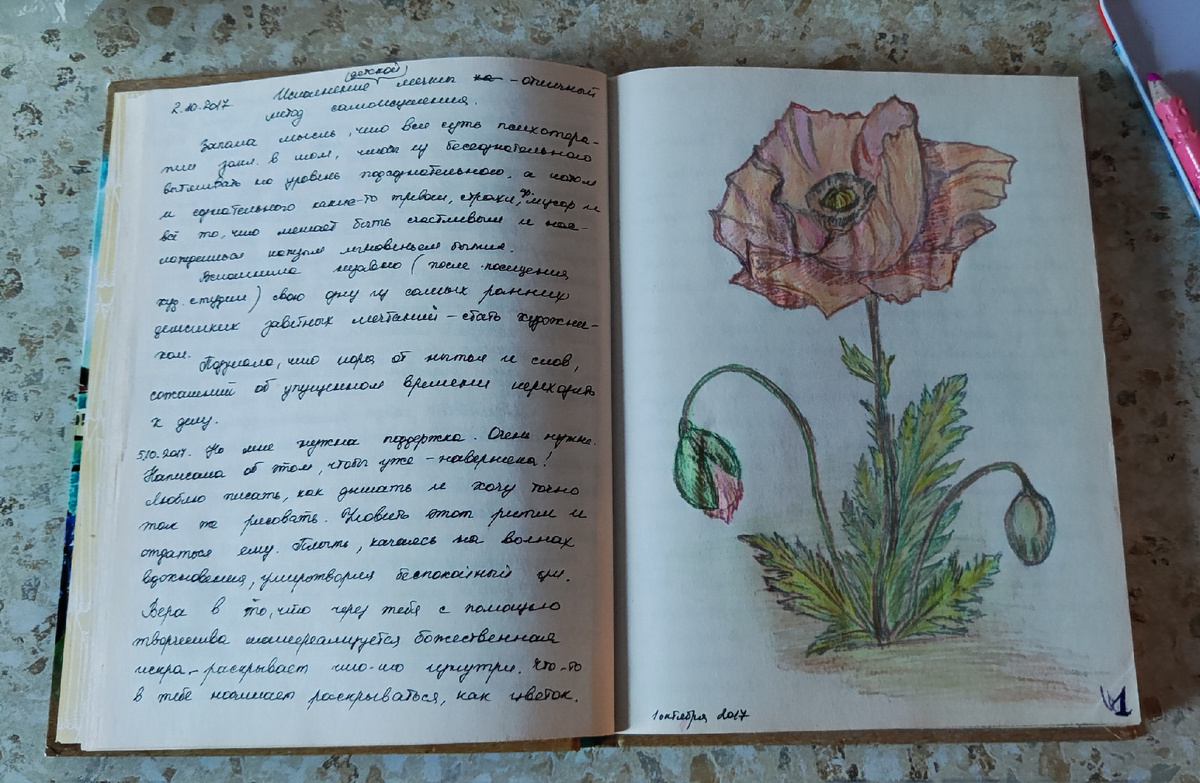 (детской)
2.10.2017 Исполнение мечты - отличный
метод самоисцеления.
Запала мысль, что вся суть психотера-
пии закл. в том, чтобы из бессознательного
вытаскивать на уровень подсознательного, а потом
и сознательного какие-то тревоги, страхи, мусор и
всё то, что мешает быть счастливым и нас-
лаждаться каждым мгновеньем бытия.
Вспомнила недавно (после посещения
худ. студии) свою одну из самых ранних
детских заветных мечтаний - стать художни-
ком.
Подумала, что пора от нытья и слов,
сожалений об упущенном времени переходить
к делу.
5.10.2017. Но мне нужна поддержка. Очень нужна.
Написала об этом, чтобы уже - наверняка!
Люблю писать, как дышать и хочу точно
так же рисовать. Уловить этот ритм и
отдаться ему. Плыть, качаясь на волнах
вдохновения, умиротворяя беспокойный ум.
Вера в то, что через тебя с помощью
творчества материализуется божественная
искра - раскрывает что-то изнутри. Что-то
в тебе начинает раскрываться, как цветок.
1 октября 2017